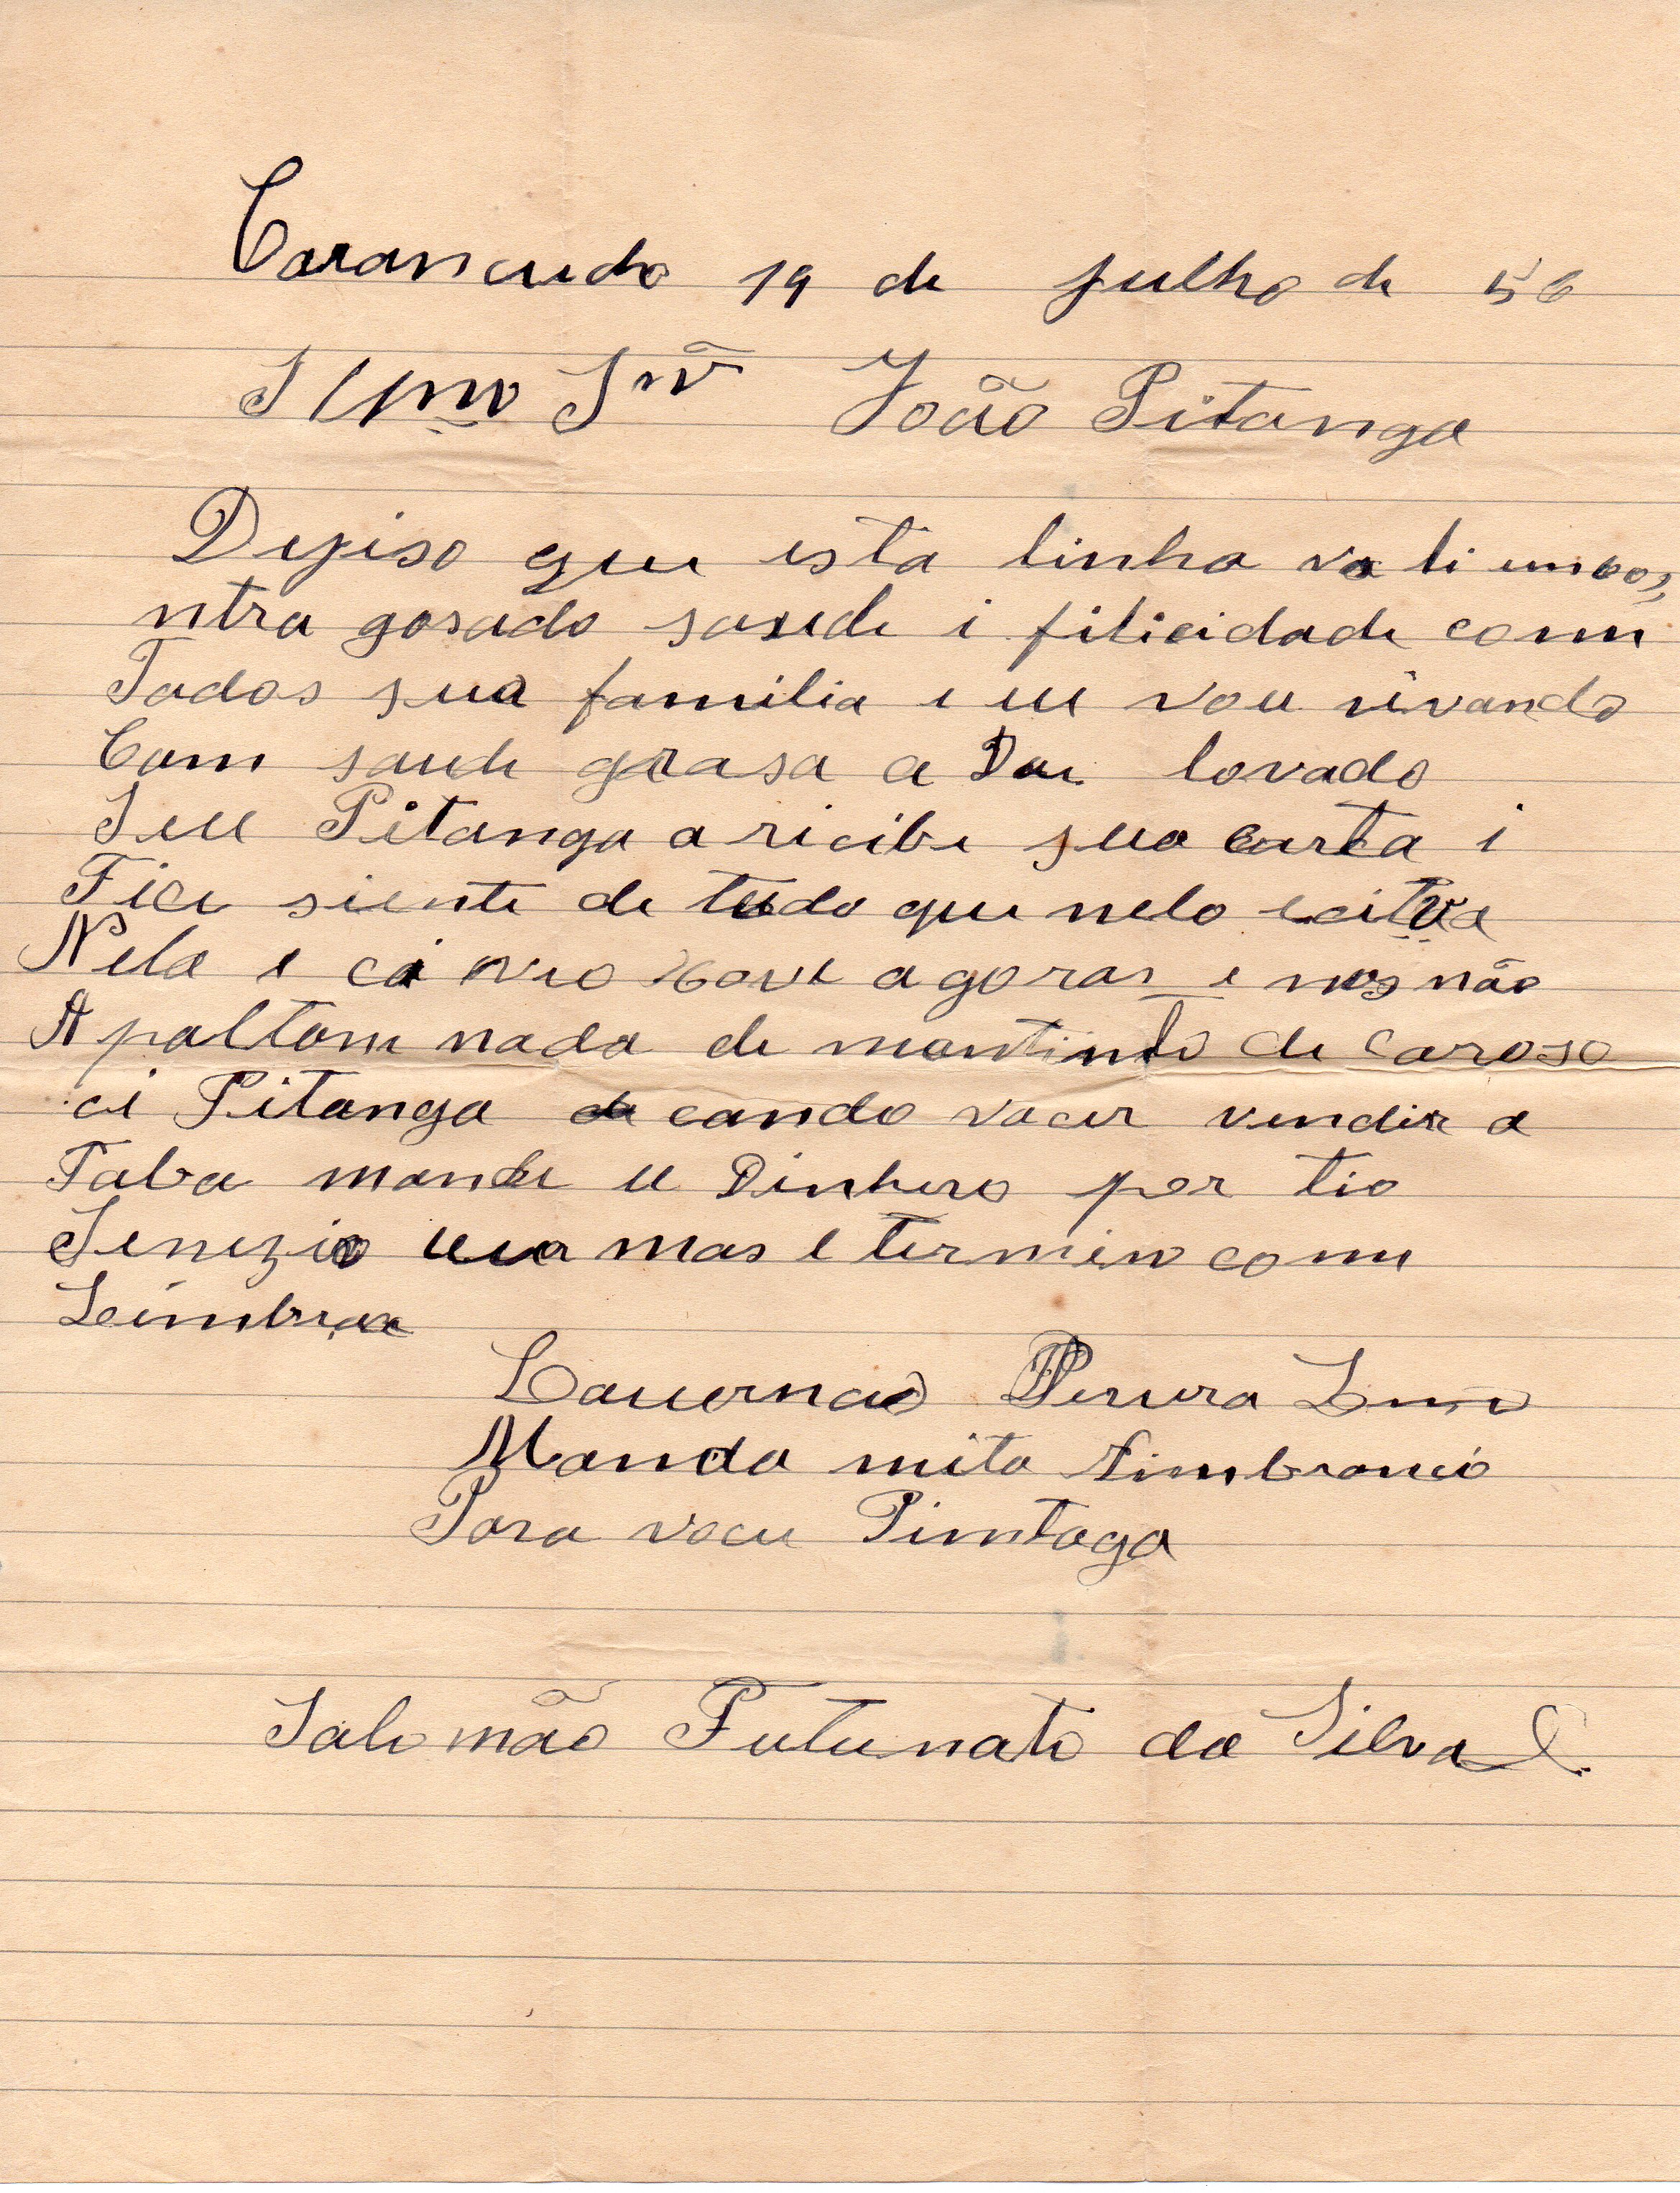 Carancudo 19 de julho de 56
Ilmo Snr João Pitanga
Dejiso que esta linha va ti emco
ntra gosado saude i filicidade com
Todos sua familia e eu vou vivando
Com saude garasa a Deu lovado
Seu Pitanga a ricibe sua carta i
Fice siente de tudo que nelo
Nela e ca nou xove agoras e nos não
A paltom nada de mantinto de caroso
ci Pitanga cando vacer vendir a
Faba mande u Dinhero por tio
Senezio mas e termino com
Leimbran
Perera
Manda mito limbrancio
Para voce Pimtaga
Salomão Futunato da Silva